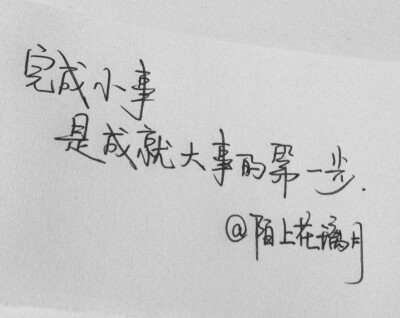 完成小事
是成就大事的第一步.
@陌上花璃月